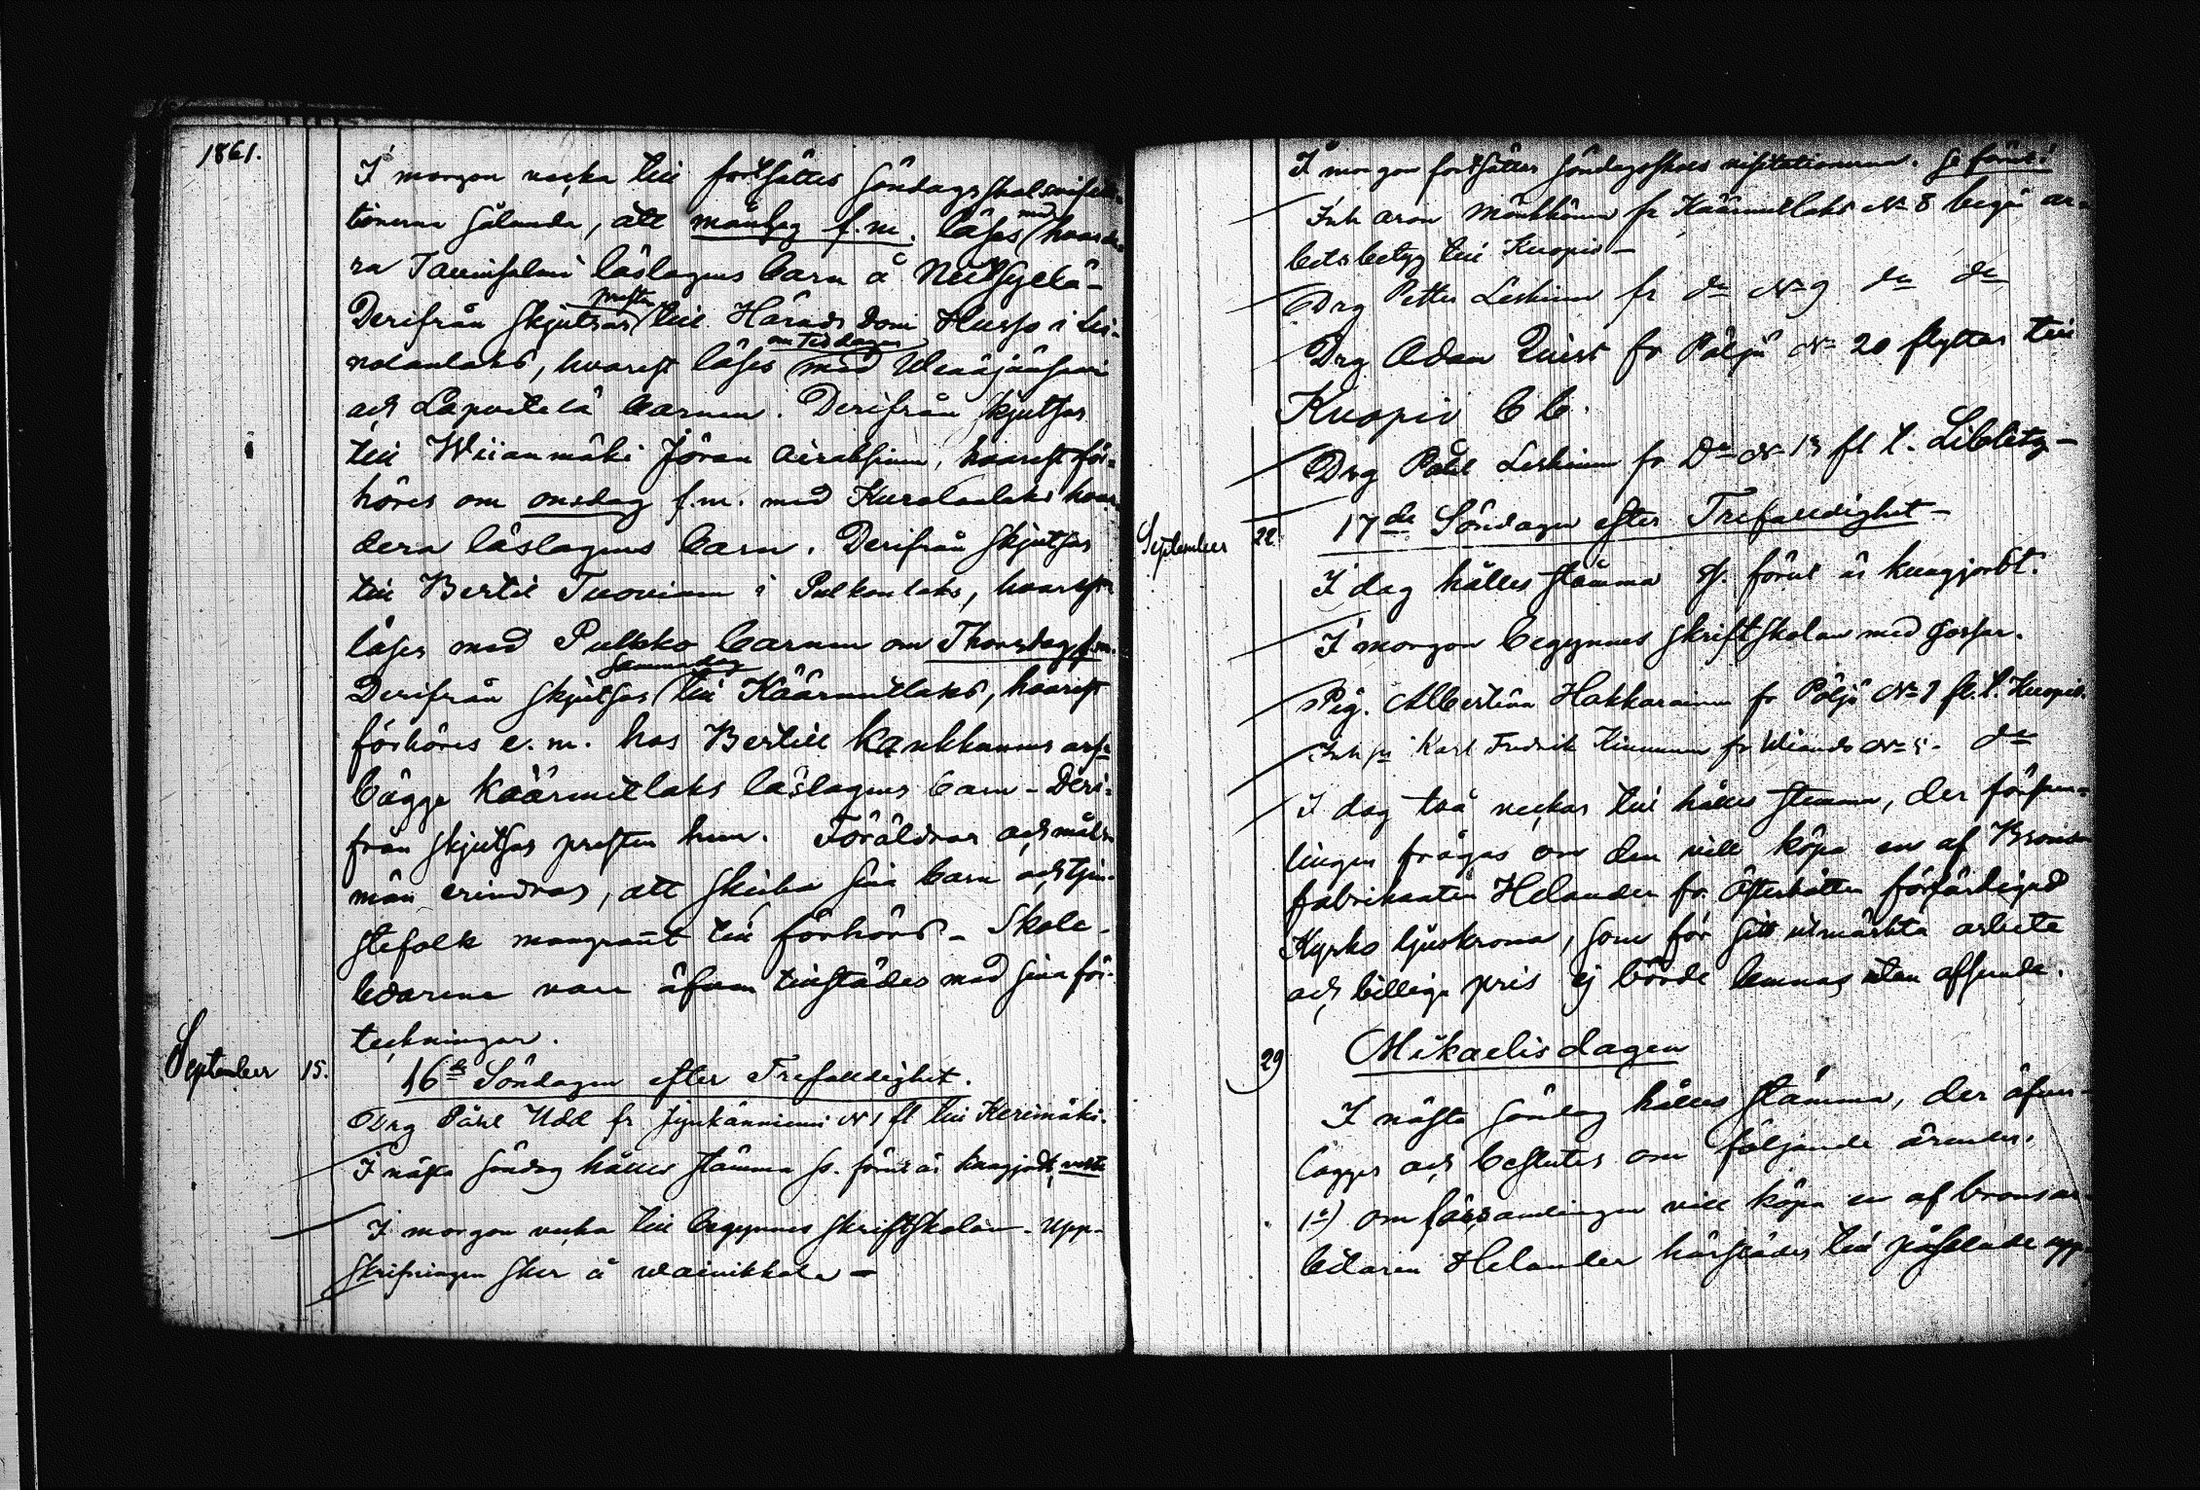 1861.
I morgon vecka till fortsättes Söndagsskolevisita-
tionerna sålunda, att måndag f.m. läses med hvarde-
ra Tavinsalmi läslagens barn å Nilssgelä -
Derifrån skjutsas presten till Härads dom Husso i Lei-
volanlaks, hvarest läses om tisdagen med Wenäjänsaari
och Lapvetelä barnen. Derifrån skjutsas
till Wiianmäki Jöran Airaksinen, hvarest för-
höres om onsdag f.m. med Kurolanlaks hvar-
dera läslagens barn. Derifrån skjutsas
till Bertil Tuovinen i Pulkonlaks, hvarest
läses med Pulkko barnen om Thorsdag f.m.
Derifrån skjutsas samma dag till Käärmelaks, hvarest
förhöres e.m. hos Bertill Kankkunens
bägge Käärmelaks läslagens barn - Deri-
från skjutsas presten hem. Föräldrar och måls-
män erindras, att skicka sina barn och tjen-
stefolk mangrant till förhörs - Skole-
bedarena vare äfven tillstädes med sina för-
teckningar.
September 15. 16de Söndagen efter Trefalldighet.
Drg Påhl Udd fr Jynkänniemi N 1 fl till Kerimäki.
I nästa Söndag hålles stämma so. förut är kungjordt,
I morgon vecka till begynnes skriftskolan - Upp-
skrifningen sker å Wainikkala -
I morgon fortsättes söndagsskols visitationerna. Se förut!
Inh Aron Mönkkönen fr Käärmelaks No 8 begär ar-
betsbetyg till Kuopio -
Drg Petter Leskinen fr do No 9 do do
Drg Adam Qvist fr Pöljä No 20 flyttar till
Kuopio
Drg Påhl Leskinen fr Do No 13 fl t. Libelitz -
September 22 17de Söndagen efter Trefalldighet -
I dag hålles stämma so. förut är kungjordt.
I morgon begynnes skriftskolan med gossar.
Pig. Albertina Hakkarainen fr Pöljä No 9 fl. t. Kuopio.
Inh Karl Fredrik Kinnunen fr Wiando No 5. do
I dag två veckor till hålles stämma, der försam-
lingen frågas om den vill köpa en af Brons-
fabrikanten Helander fr. Österbotten förfärdigad
Kyrko ljuskrona, som för sitt utmärkta arbete
och billiga pris ej borde lemnas utan afseende.
29 Mikaelisdagen
I nästa söndag hålles stämma, der äfver-
lägges och beslutes om följande ärender.
1o) om församlingen vill köpa en af bronsar-
betaren Helander härstädes till påseende upp-